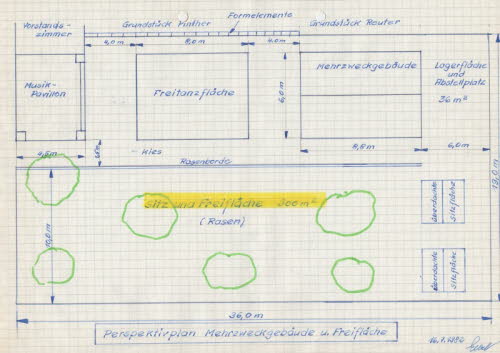 Vorstands-
zimmer
Grundstück Pinther
Formelemente
Grundstück Reuter
4,0 m
8,0 m
4,0 m
Musik-
Pavillon
Freitanzfläche
6,0 m
Mehrzweckgebäude
Lagerfläche
und
Abstellplatz
36 m²
kies
8,6 m
6,0 m
Rasenborde
13,0 m
10,0 m
Sitz und Freifläche 300 m²
(Rasen)
überdachte
Sitzfläche
überdachte
Sitzfläche
36,0 m
Perspektivplan Mehrzweckgebäude u. Freifläche